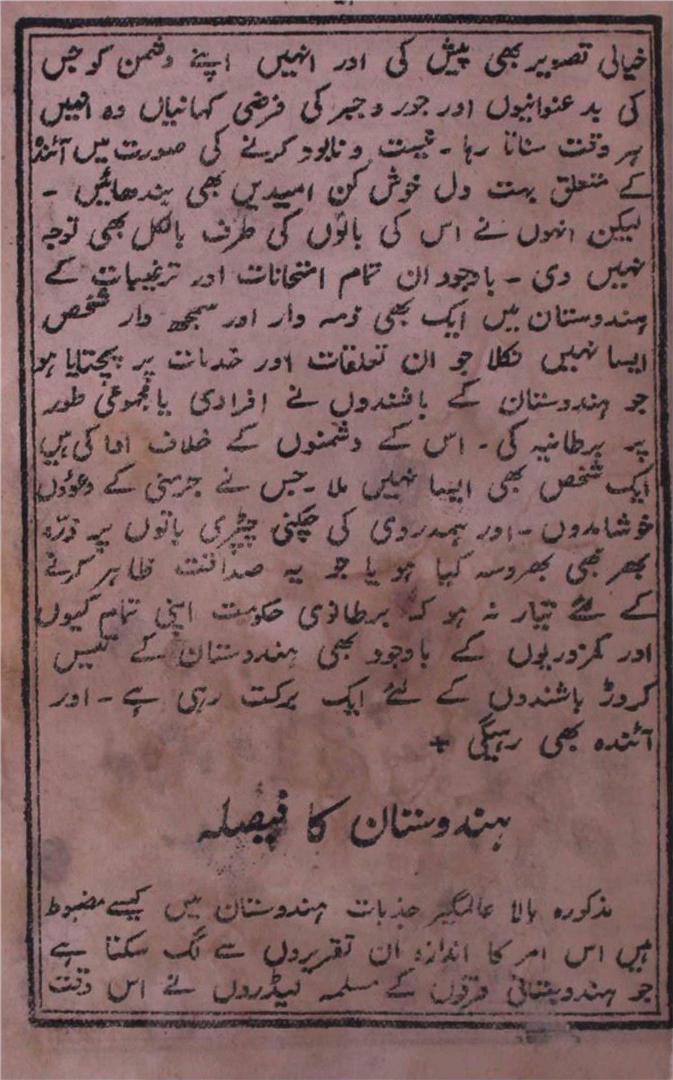 خیالی تصویر بھی پیش کی اور انہیں اپنے دشمن کو جس
کی بد عنوانیوں اور جور و جبر کی فرضی کہانیاں وہ انہیں
ہر وقت سناتا رہا ۔ نیست و نابود کرنے کی صورت میں آئندہ
کے متعلق بہت دل خوش کن امیدیں بھی بندھائیں ۔
لیکن انہوں نے اس کی باتوں کی طرف بالکل بھی توجہ
نہیں دی ۔ باوجود ان تمام امتحانات اور ترغیبات کے
ہندوستان میں ایک بھی ذمہ وار اور سمجھ دار شخص
ایسا نہیں نکلا جو ان تعلقات اور خدمات پر پچتایا ہو
جو ہندوستان کے باشندوں نے افرادی یا مجموعی طور
پر برطانیہ کی ۔ اس کے دشمنوں کے خلاف ادا کی ہیں
ایک شخص بھی ایسا نہیں ملا ۔ جس نے جرمنی کے دعؤوں
خوشامدوں ۔ اور ہمدردی کی چکنی چپڑی باتوں پر ذرّہ
بھر بھی بھروسہ کیا ہو یا جو یہ صداقت ظاہر کرنے
کے لئے تیار نہ ہو کہ برطانوی حکومت اپنی تمام کمیوں
اور کمزوریوں کے باوجود بھی ہندوستان کے تیس
کروڑ باشندوں کے لئے ایک برکت رہی ہے ۔ اور
آئندہ بھی رہیگی +
ہندوستان کا فیصلہ
مذکورہ بالا عالمگیر جذبات ہندوستان میں کیسے مضبوط
ہیں اس امر کا اندازہ ان تقریروں سے لگ سکتا ہے
جو ہندوستانی فرقوں کے مسلمہ لیڈروں نے اس وقت